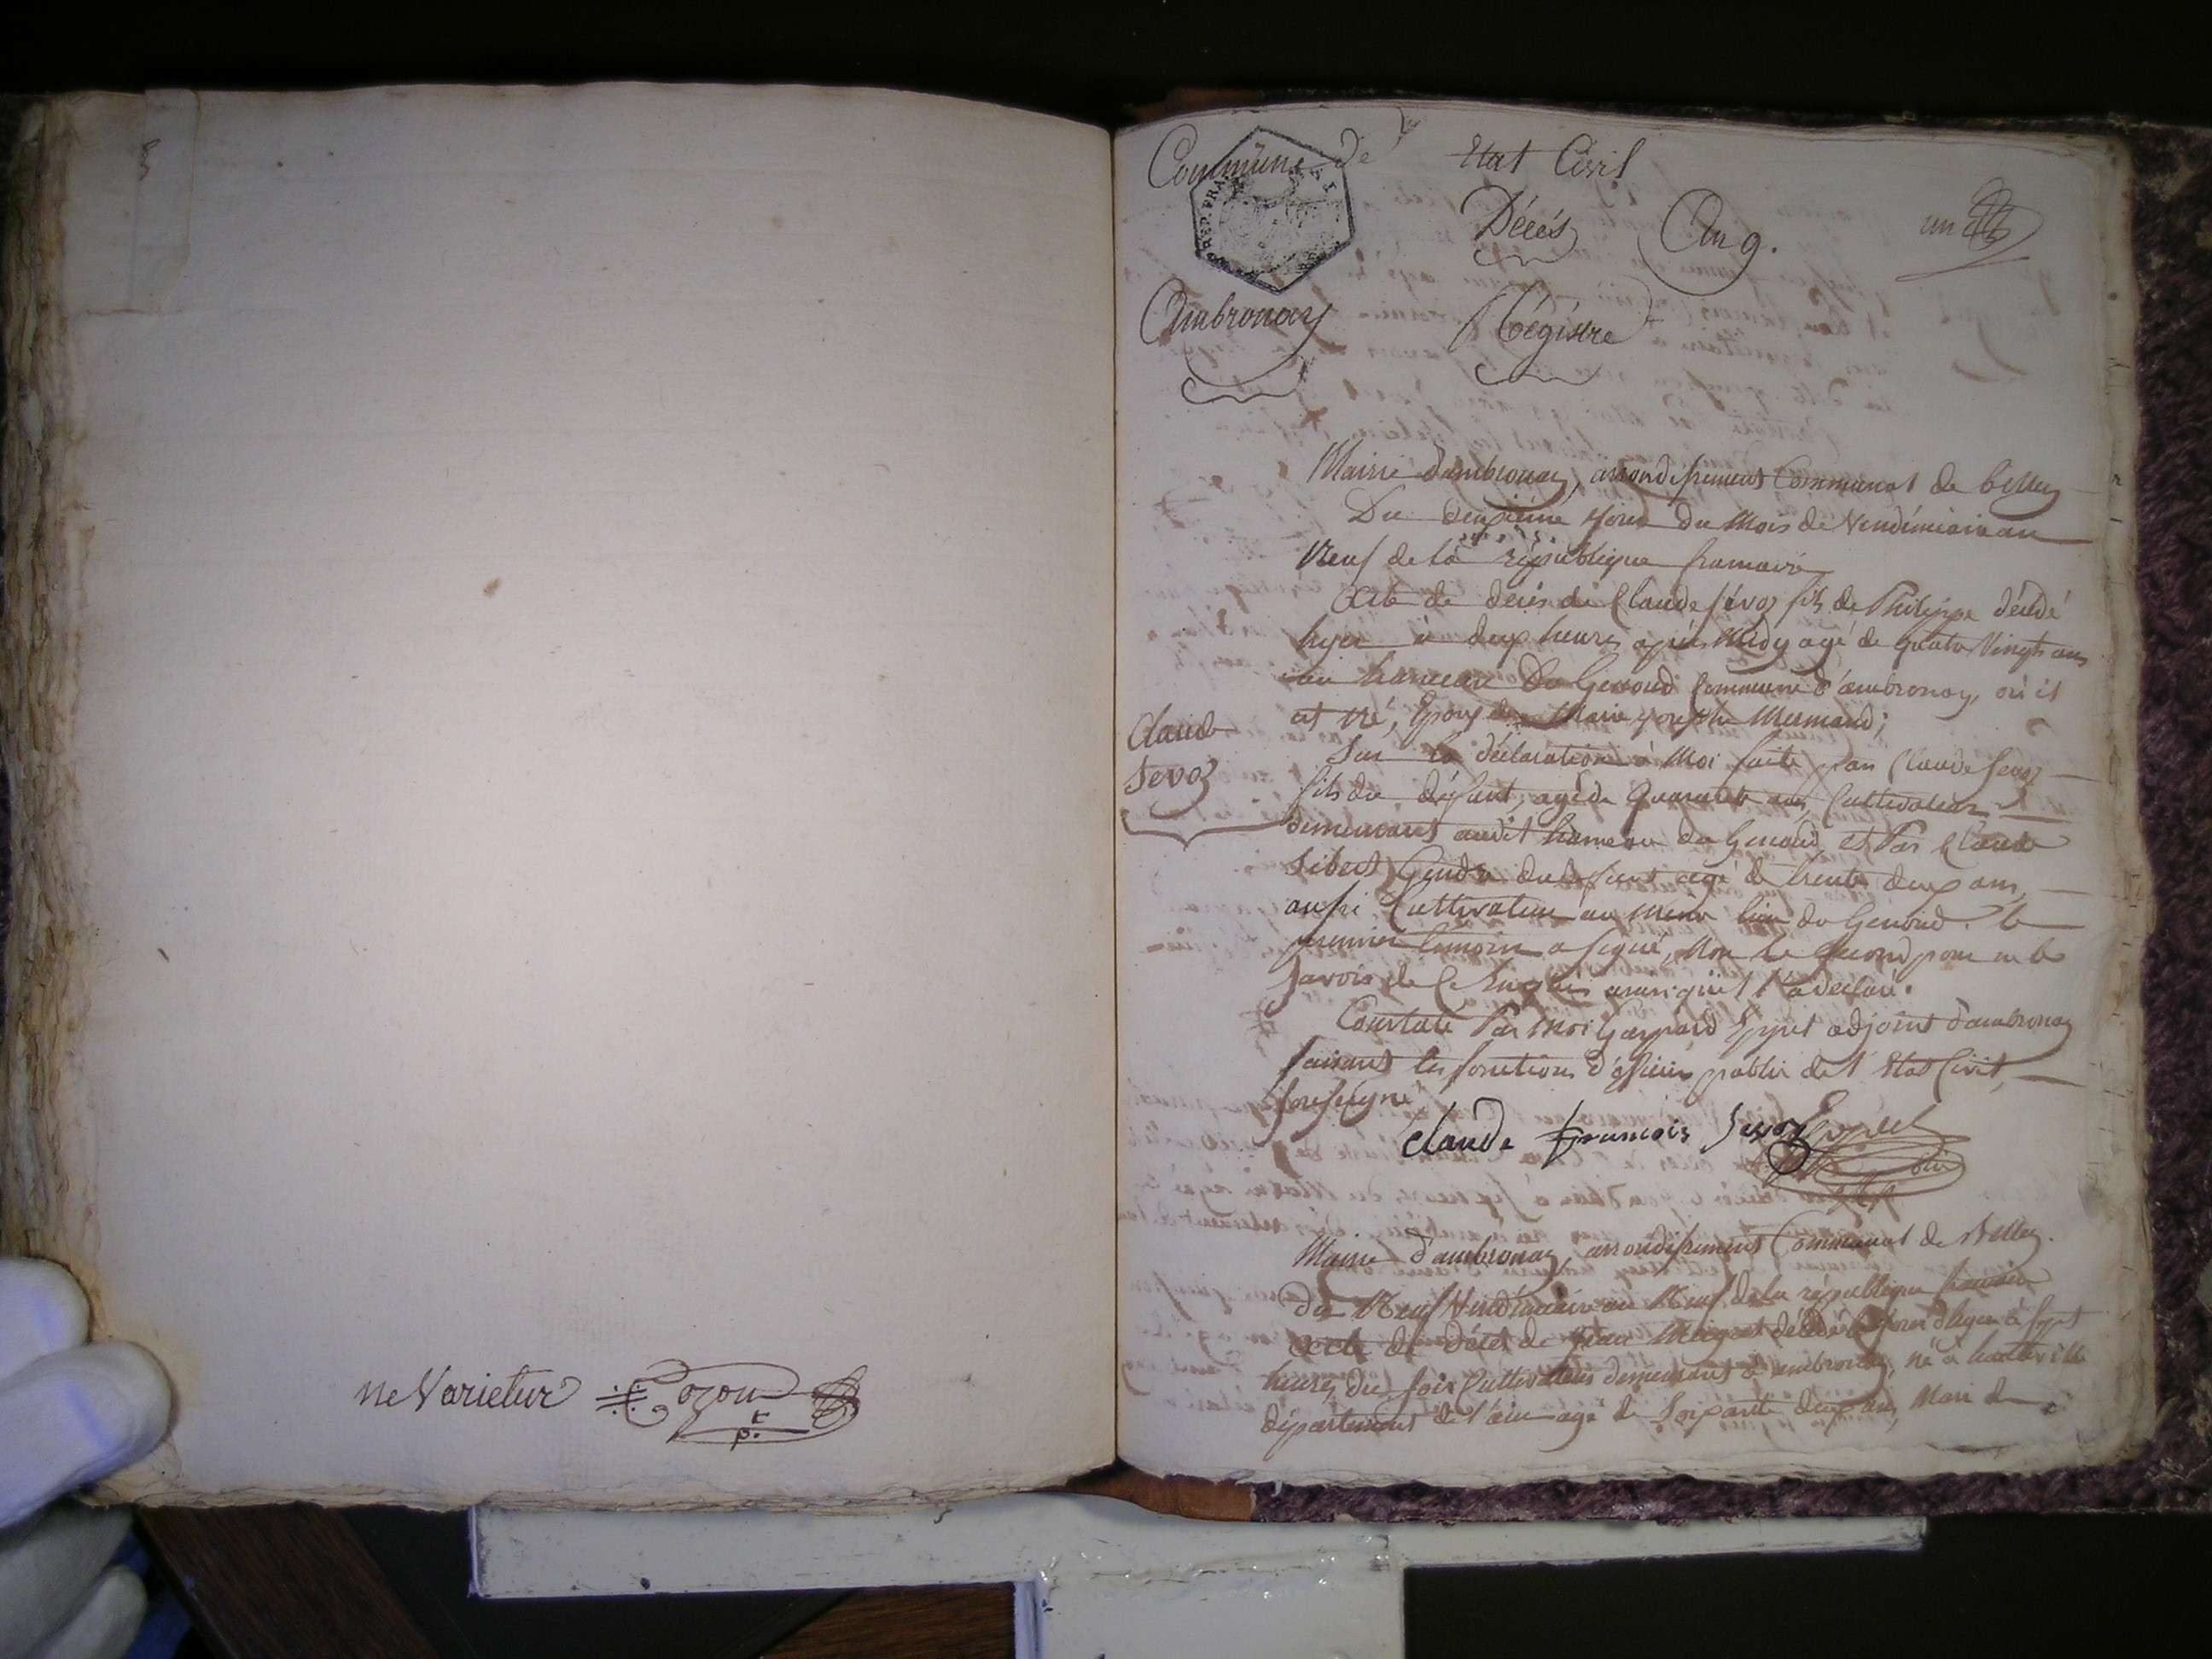 ne Varietur Cozon
p.t
Commune de Etat Civil
Décés An 9. un
Ambronay Régistre
Mairie d'ambronay, arrondissement Communal de belley
Du deuxième jour du Mois de Vendémiaire an
Neuf de la république francaise
Acte de décés de Claude Sévoz fils de Philippe décédé
hyer à deux heures après Midy agé de quatre Vingts ans
au hameau du Genoud Commune d'ambronay, où il
est né, Epoux de Marie josephe Mermand;
Claude
Sevoz
Sur la déclaration à Moi faite par Claude Sevoz
fils du défunt, agé de Quarante ans, Cultivateur
demeurant audit hameau du Genoud, et Par Claude
Sibert Gendre du defunt agé de trente deux ans,
aussi Cultivateur au même lieu du Genoud. le
premier témoin a signé, Non le second pour ne le
savoir de Ce enquis ainsi qu'il l'a déclaré.
Constaté Par Moi Gaspard adjoint d'ambronay
faisant les fonctions d'officier public de l'Etat Civil,
soussigné
Claude francois Sevoz
Mairie d'ambronay, arrondissement Communal de Belley.
Du Neuf Vendémiaire an Neuf de la république francaise
Acte de décés de jean décédé le jour d'hyer à sept
heures du soir Cultivateur demeurant à ambronay, né à hauteville
département de l'ain agé de soixante deux ans, Mari de